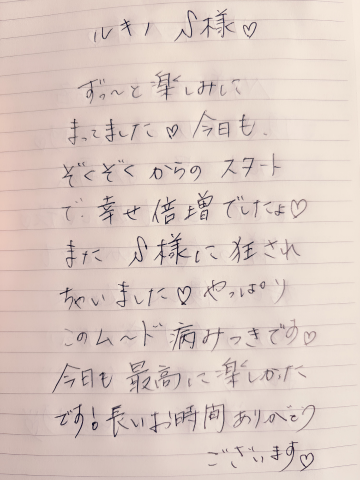 ルキノ S様♡
ずっ〜と楽しみに
まってました♡ 今日も、
ぞくぞくからのスタート
で、幸せ倍増でしたよ♡
また S様に狂され
ちゃいました♡ やっぱり
このム〜ド病みつきです♡
今日も最高に楽しかった
です! 長いお時間ありがとう
ございます♡